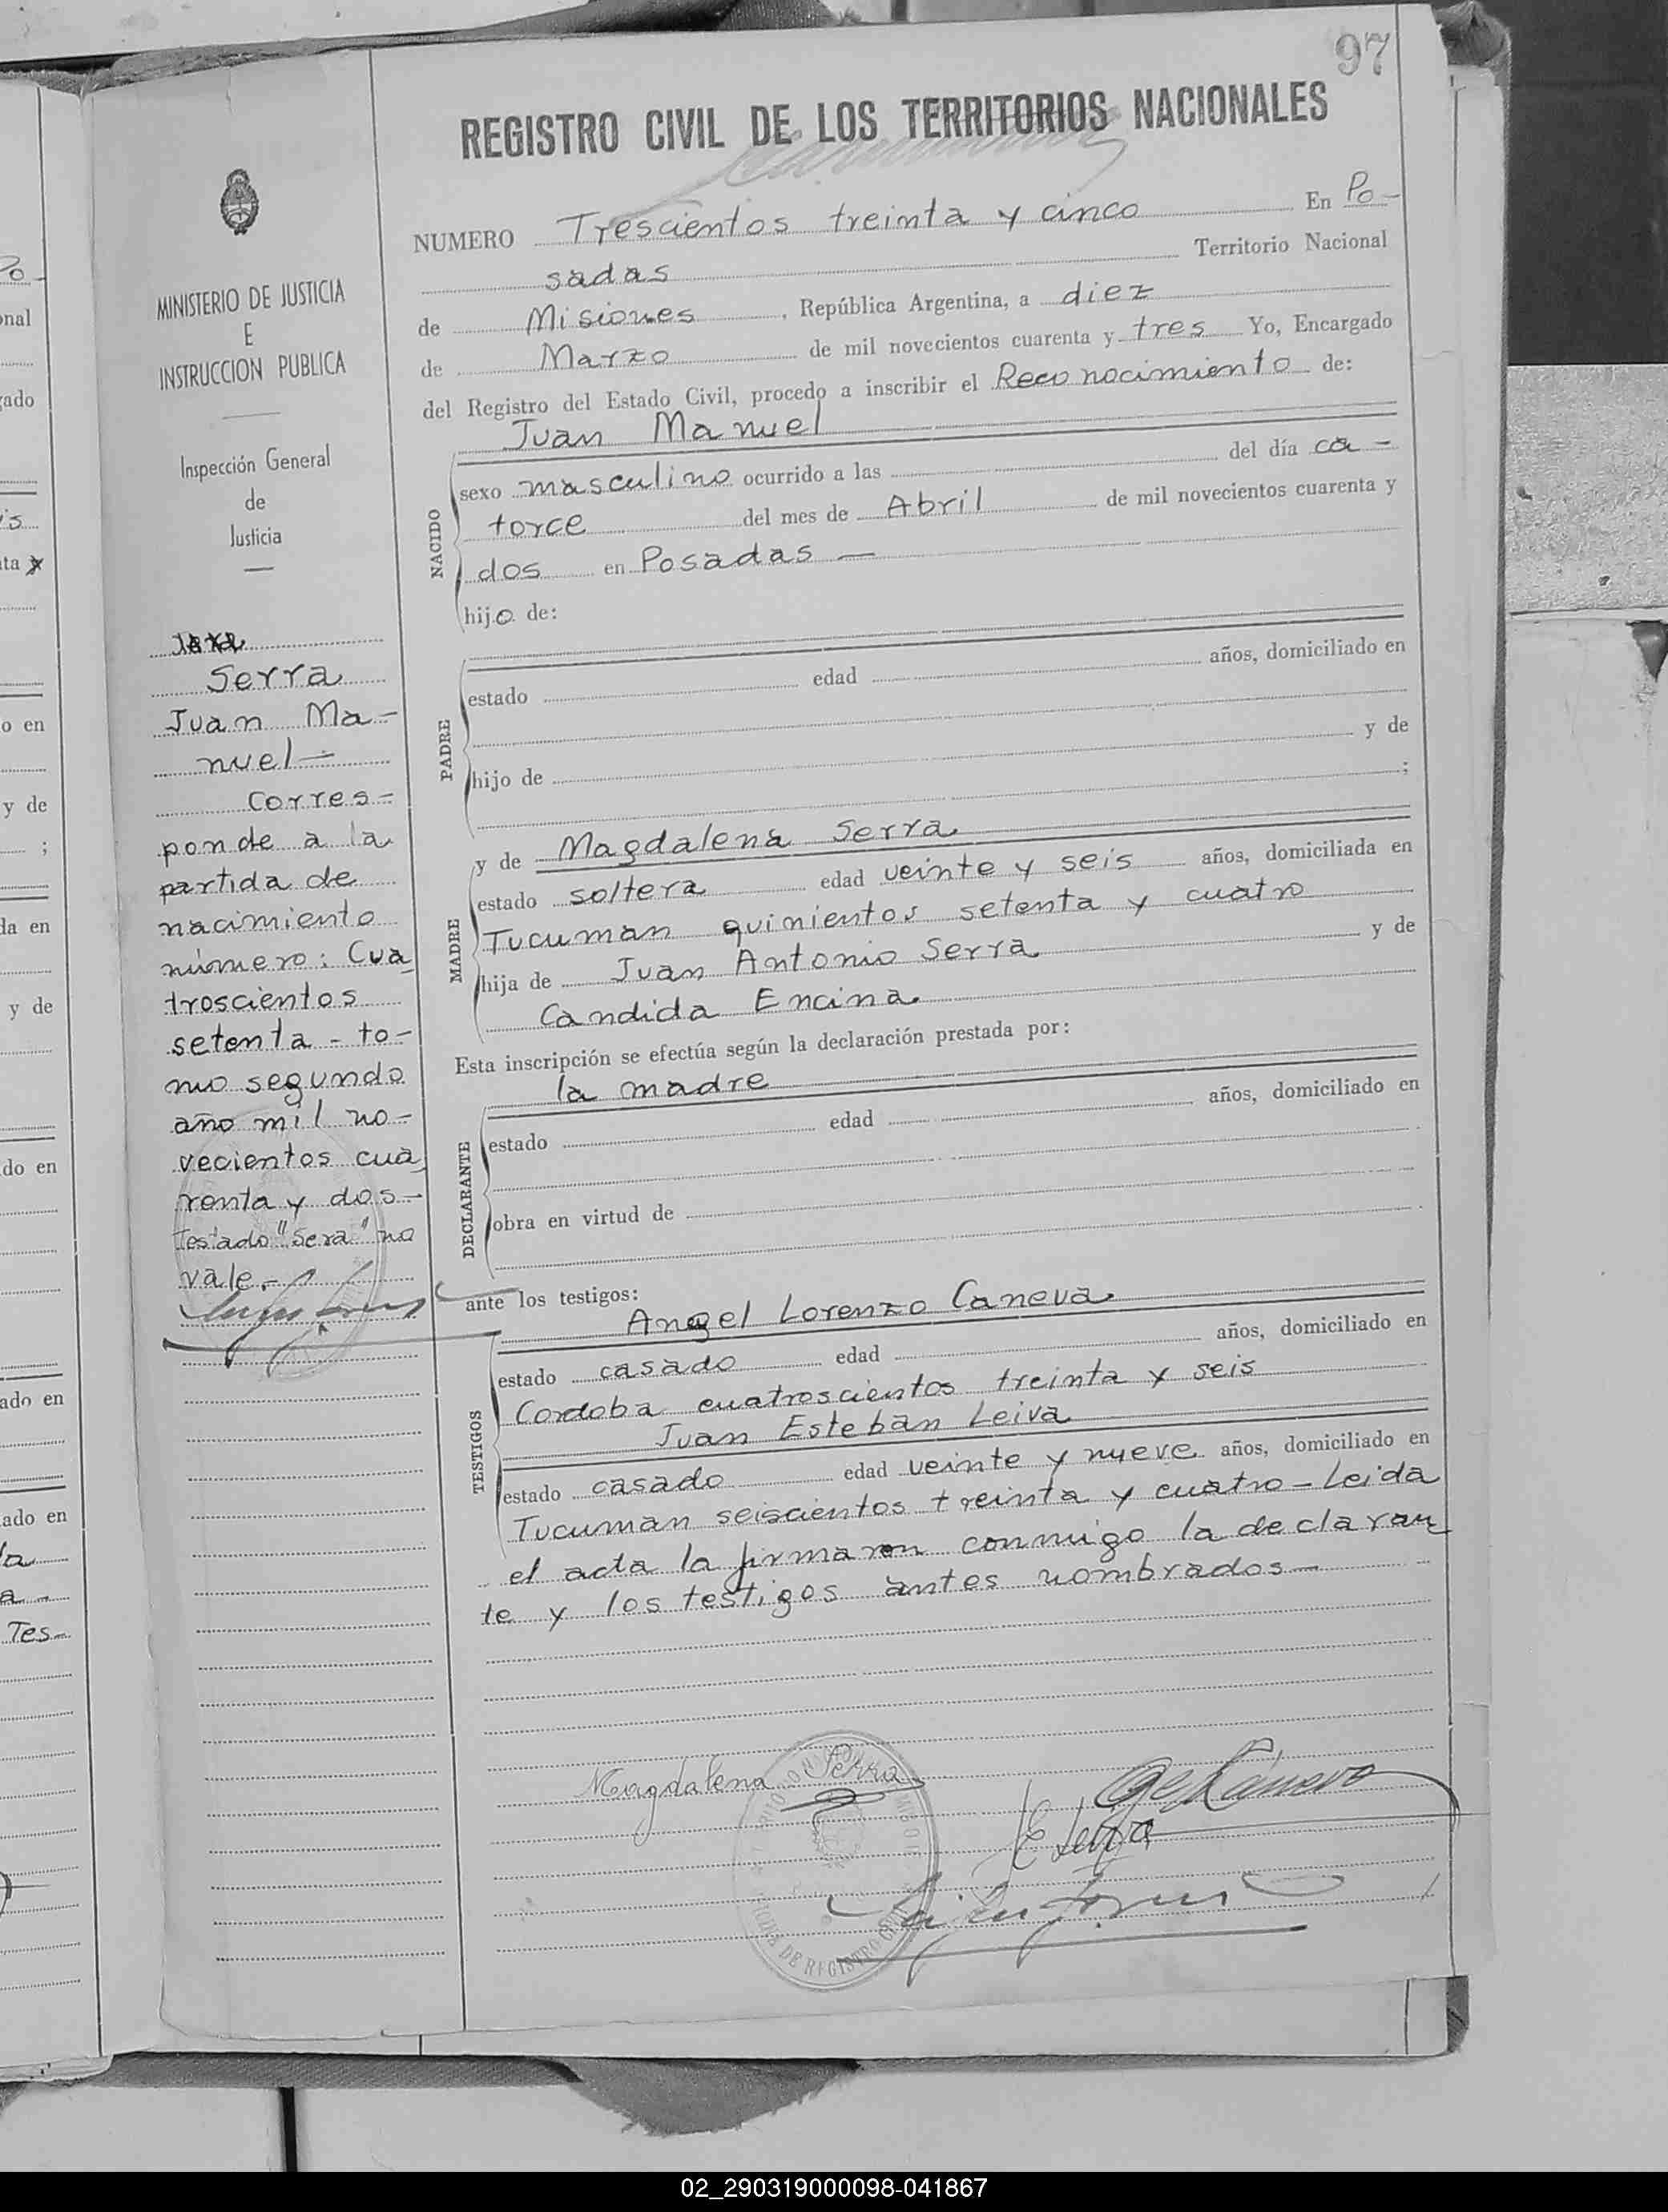 97
REGISTRO CIVIL DE LOS TERRITORIOS NACIONALES
MINISTERIO DE JUSTICIA
E
INSTRUCCION PUBLICA
Inspección General
de
Justicia
Serra
Juan Ma-
nuel-
Corres-
ponde a la
partida de
nacimiento
número: Cua
troscientos
setenta - to-
mo segundo
año mil no-
vecientos cua
renta y dos-
Testado "Sera" no
vale.-
NUMERO Trescientos treinta y cinco En Po-
sadas Territorio Nacional
de Misiones, República Argentina, a diez
de Marzo de mil novecientos cuarenta y tres Yo, Encargado
del Registro del Estado Civil, procedo a inscribir el Reconocimiento de:
Juan Manuel
NACIDO
sexo masculino ocurrido a las del día ca-
torce del mes de Abril de mil novecientos cuarenta y
dos en Posadas -
hijo de:
PADRE
estado edad años, domiciliado en
hijo de y de
;
y de Magdalena Serra
MADRE
estado soltera edad veinte y seis años, domiciliada en
Tucuman quinientos setenta y cuatro
hija de Juan Antonio Serra y de
Candida Encina.
Esta inscripción se efectúa según la declaración prestada por:
la madre
DECLARANTE
estado edad años, domiciliado en
obra en virtud de
ante los testigos:
Angel Lorenzo Caneva.
TESTIGOS
estado casado edad años, domiciliado en
Cordoba cuatroscientos treinta y seis
Juan Esteban Leiva
estado casado edad veinte y nueve años, domiciliado en
Tucuman seiscientos treinta y cuatro - Leida
el acta la firmaron conmigo la declaran
te y los testigos antes nombrados-
Magdalena Serra
02_290319000098-041867